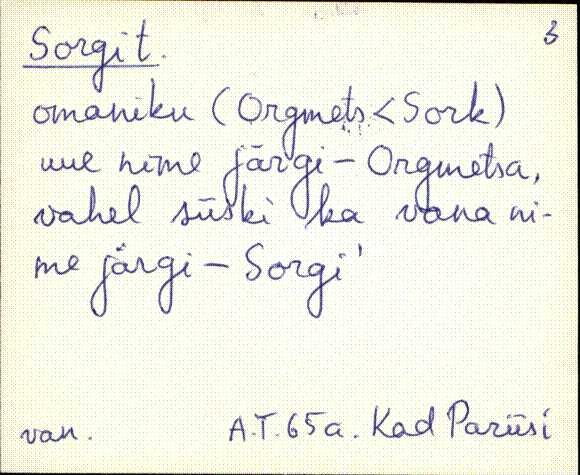 Sorgi t. 3
omaniku (Orgmets < Sork)
uue nime järgi – Orgmetsa,
vahel siiski ka vana ni-
me järgi – Sorgi'
van. A.T. 65a. Kad Pariisi